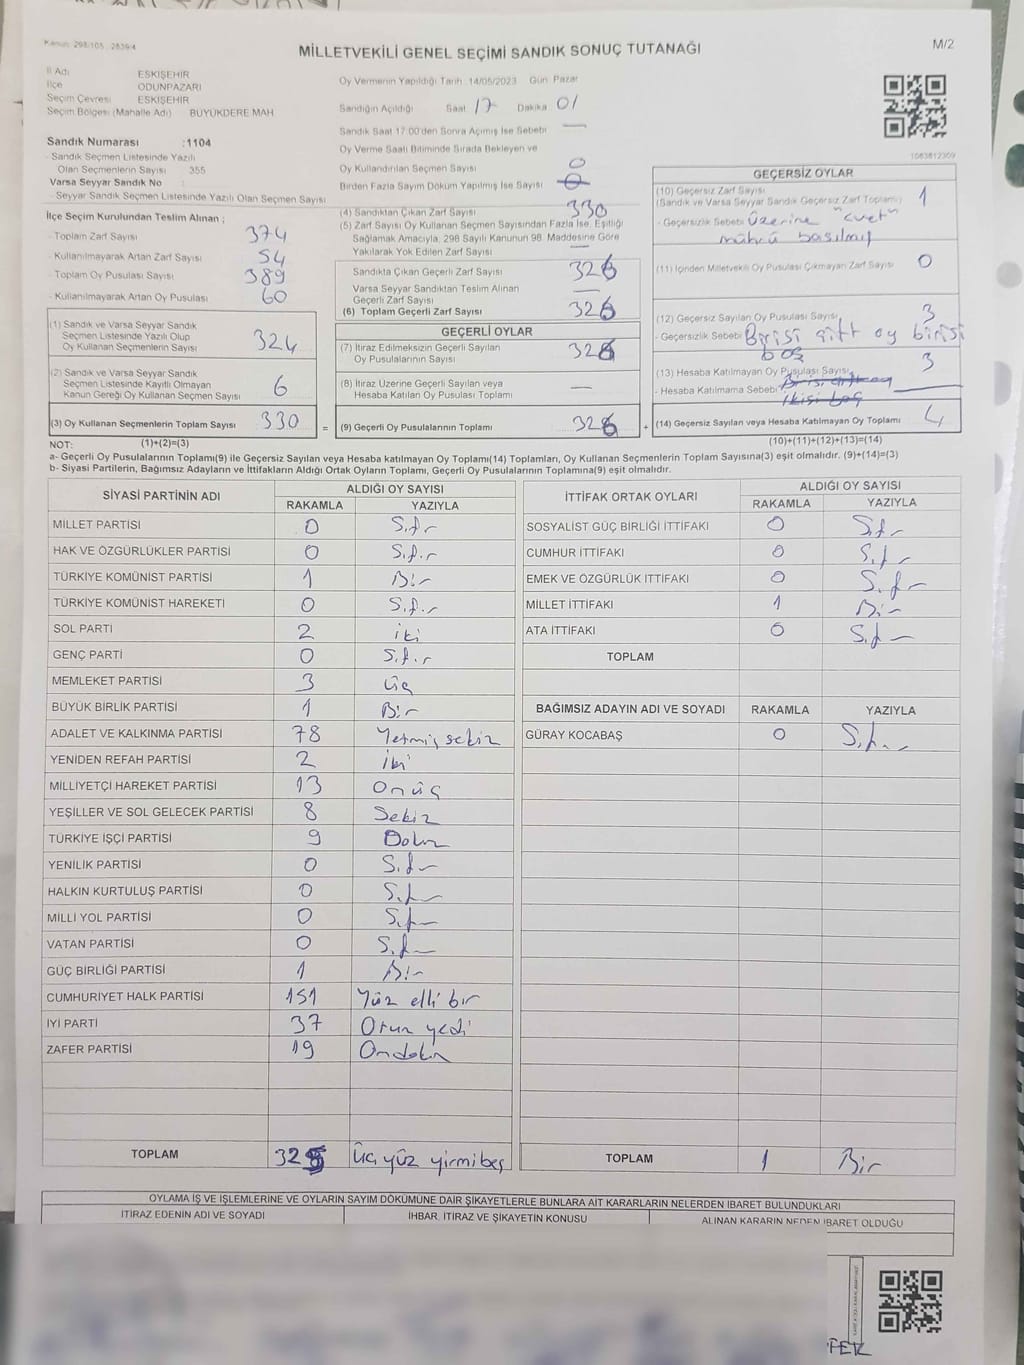 Kanun: 298/105, 2839/4
MİLLETVEKİLİ GENEL SEÇİMİ SANDIK SONUÇ TUTANAĞI
M/2
İl Adı ESKİŞEHİR
İlçe ODUNPAZARI
Seçim Çevresi ESKİŞEHİR
Seçim Bölgesi (Mahalle Adı) BÜYÜKDERE MAH.
Oy Vermenin Yapıldığı Tarih :14/05/2023 Gün Pazar
Sandığın Açıldığı Saat 17 Dakika 01
Sandık Saat 17.00'den Sonra Açımış İse Sebebi —
Oy Verme Saati Bitiminde Sırada Bekleyen ve
Oy Kullandırılan Seçmen Sayısı 0
Birden Fazla Sayım Döküm Yapılmış İse Sayısı
1083812309
Sandık Numarası :1104
- Sandık Seçmen Listesinde Yazılı
Olan Seçmenlerin Sayısı 355
Varsa Seyyar Sandık No :
- Seyyar Sandık Seçmen Listesinde Yazılı Olan Seçmen Sayısı
İlçe Seçim Kurulundan Teslim Alınan ;
- Toplam Zarf Sayısı 374
- Kullanılmayarak Artan Zarf Sayısı 54
- Toplam Oy Pusulası Sayısı 389
- Kullanılmayarak Artan Oy Pusulası 60
(1) Sandık ve Varsa Seyyar Sandık
Seçmen Listesinde Yazılı Olup
Oy Kullanan Seçmenlerin Sayısı 324
(2) Sandık ve Varsa Seyyar Sandık
Seçmen Listesinde Kayıtlı Olmayan
Kanun Gereği Oy Kullanan Seçmen Sayısı 6
(3) Oy Kullanan Seçmenlerin Toplam Sayısı 330 =
(4) Sandıktan Çıkan Zarf Sayısı 330
(5) Zarf Sayısı Oy Kullanan Seçmen Sayısından Fazla İse, Eşitliği
Sağlamak Amacıyla, 298 Sayılı Kanunun 98. Maddesine Göre
Yakılarak Yok Edilen Zarf Sayısı —
Sandıkta Çıkan Geçerli Zarf Sayısı 326
Varsa Seyyar Sandıktan Teslim Alınan
Geçerli Zarf Sayısı —
(6) Toplam Geçerli Zarf Sayısı 326
GEÇERLİ OYLAR
(7) İtiraz Edilmeksizin Geçerli Sayılan
Oy Pusulalarının Sayısı 326
(8) İtiraz Üzerine Geçerli Sayılan veya
Hesaba Katılan Oy Pusulası Toplamı —
(9) Geçerli Oy Pusulalarının Toplamı 326 +
GEÇERSİZ OYLAR
(10) Geçersiz Zarf Sayısı
(Sandık ve Varsa Seyyar Sandık Geçersiz Zarf Toplamı) 1
- Geçersizlik Sebebi üzerine "evet"
mührü basılmış
(11) İçinden Milletvekili Oy Pusulası Çıkmayan Zarf Sayısı 0
(12) Geçersiz Sayılan Oy Pusulası Sayısı 3
- Geçersizlik Sebebi Birisi çift oy birisi
boş
(13) Hesaba Katılmayan Oy Pusulası Sayısı 3
- Hesaba Katılmama Sebebi
(14) Geçersiz Sayılan veya Hesaba Katılmayan Oy Toplamı 4
NOT: (1)+(2)=(3) (10)+(11)+(12)+(13)=(14)
a- Geçerli Oy Pusulalarının Toplamı(9) ile Geçersiz Sayılan veya Hesaba katılmayan Oy Toplamı(14) Toplamları, Oy Kullanan Seçmenlerin Toplam Sayısına(3) eşit olmalıdır. (9)+(14)=(3)
b- Siyasi Partilerin, Bağımsız Adayların ve İttifakların Aldığı Ortak Oyların Toplamı, Geçerli Oy Pusulalarının Toplamına(9) eşit olmalıdır.
SİYASİ PARTİNİN ADI ALDIĞI OY SAYISI
RAKAMLA YAZIYLA
MİLLET PARTİSİ 0 Sıfır
HAK VE ÖZGÜRLÜKLER PARTİSİ 0 Sıfır
TÜRKİYE KOMÜNİST PARTİSİ 1 Bir
TÜRKİYE KOMÜNİST HAREKETİ 0 Sıfır
SOL PARTİ 2 iki
GENÇ PARTİ 0 Sıfır
MEMLEKET PARTİSİ 3 üç
BÜYÜK BİRLİK PARTİSİ 1 Bir
ADALET VE KALKINMA PARTİSİ 78 Yetmiş sekiz
YENİDEN REFAH PARTİSİ 2 iki
MİLLİYETÇİ HAREKET PARTİSİ 13 Onüç
YEŞİLLER VE SOL GELECEK PARTİSİ 8 Sekiz
TÜRKİYE İŞÇİ PARTİSİ 9 Dokuz
YENİLİK PARTİSİ 0 Sıfır
HALKIN KURTULUŞ PARTİSİ 0 Sıfır
MİLLİ YOL PARTİSİ 0 Sıfır
VATAN PARTİSİ 0 Sıfır
GÜÇ BİRLİĞİ PARTİSİ 1 Bir
CUMHURİYET HALK PARTİSİ 151 Yüz elli bir
İYİ PARTİ 37 Otuz yedi
ZAFER PARTİSİ 19 Ondokuz
TOPLAM 325 üç yüz yirmibeş
İTTİFAK ORTAK OYLARI ALDIĞI OY SAYISI
RAKAMLA YAZIYLA
SOSYALİST GÜÇ BİRLİĞİ İTTİFAKI 0 Sıfır
CUMHUR İTTİFAKI 0 Sıfır
EMEK VE ÖZGÜRLÜK İTTİFAKI 0 Sıfır
MİLLET İTTİFAKI 1 Bir
ATA İTTİFAKI 0 Sıfır
TOPLAM
BAĞIMSIZ ADAYIN ADI VE SOYADI RAKAMLA YAZIYLA
GÜRAY KOCABAŞ 0 Sıfır
TOPLAM 1 Bir
OYLAMA İŞ VE İŞLEMLERİNE VE OYLARIN SAYIM DÖKÜMÜNE DAİR ŞİKAYETLERLE BUNLARA AİT KARARLARIN NELERDEN İBARET BULUNDUKLARI
İTİRAZ EDENİN ADI VE SOYADI İHBAR, İTİRAZ VE ŞİKAYETİN KONUSU ALINAN KARARIN NEDEN İBARET OLDUĞU